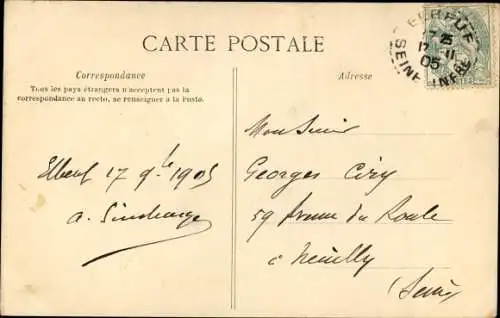 CARTE POSTALE
ELBEUF
17 11
05
SEINE-INFRE
Correspondance
Tous les pays étrangers n'acceptent pas la
correspondance au recto, se renseigner à la Poste.
Adresse
Elbeuf 17 9bre 1905
a.
Monsieur
Georges Ciry
59 avenue du Roule
à Neuilly
(Seine)